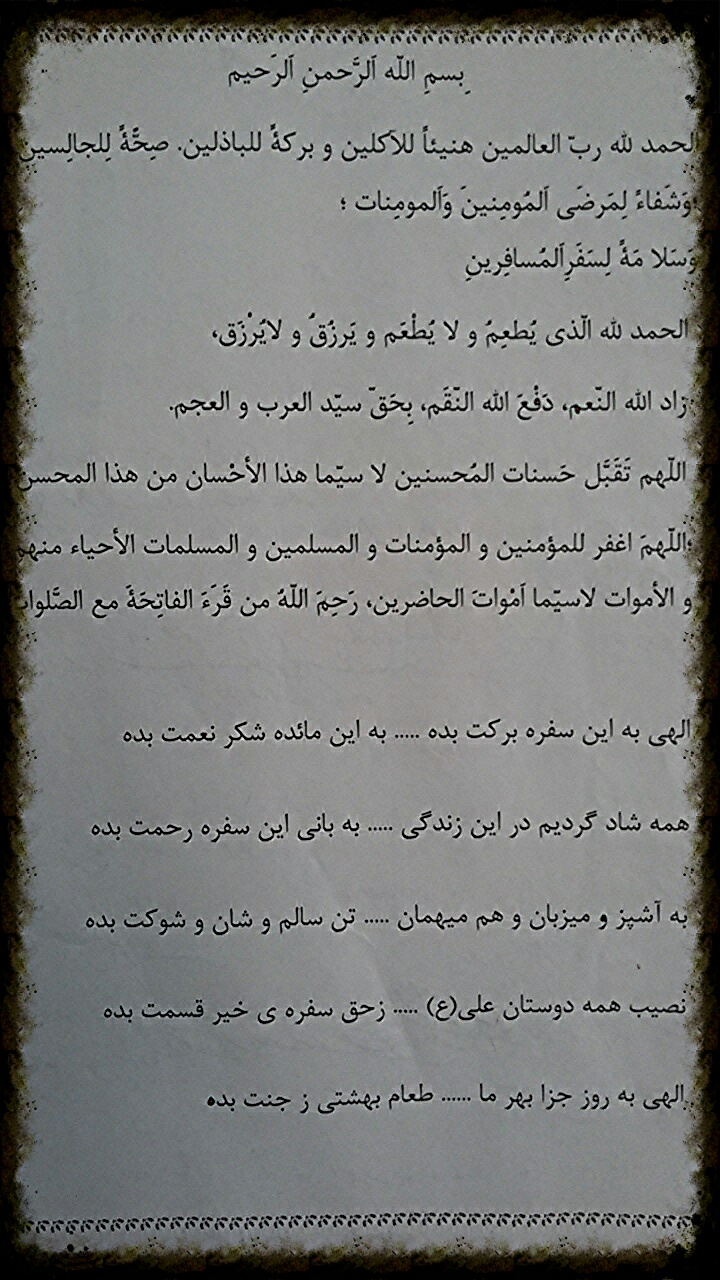 بِسمِ اللّه اَلرَّحمنِ اَلرَحیم
الحمد لله ربّ العالمین هنیئاً للآکلین و برکةً للباذلین. صِحَّةً لِلجالِسین
وَشَفاءً لِمَرضَی اَلمُومِنینَ وَاَلمومِنات ؛
وَسَلا مَةً لِسَفَرِاَلمُسافِرینِ
الحمد لله الّذی یُطعِمُ و لا یُطْعَم و یَرزُقُ و لایُرْزَق،
زاد الله النّعم، دَفْعَ الله النّقَم، بِحَقّ سیّد العرب و العجم.
اللّهم تَقَبَّل حَسنات المُحسنین لا سیّما هذا الأحْسان من هذا المحسن
؛اللّهمَ اغفر للمؤمنین و المؤمنات و المسلمین و المسلمات الأحیاء منهم
و الأموات لاسیّما اَمْواتَ الحاضرین، رَحِمَ اللّهُ من قَرَءَ الفاتِحَةَ مع الصَّلوات
الهی به این سفره برکت بده ..... به این مائده شکر نعمت بده
همه شاد گردیم در این زندگی ..... به بانی این سفره رحمت بده
به آشپز و میزبان و هم میهمان ..... تن سالم و شان و شوکت بده
نصیب همه دوستان علی(ع) ..... زحق سفره ی خیر قسمت بده
الهی به روز جزا بهر ما ...... طعام بهشتی ز جنت بده